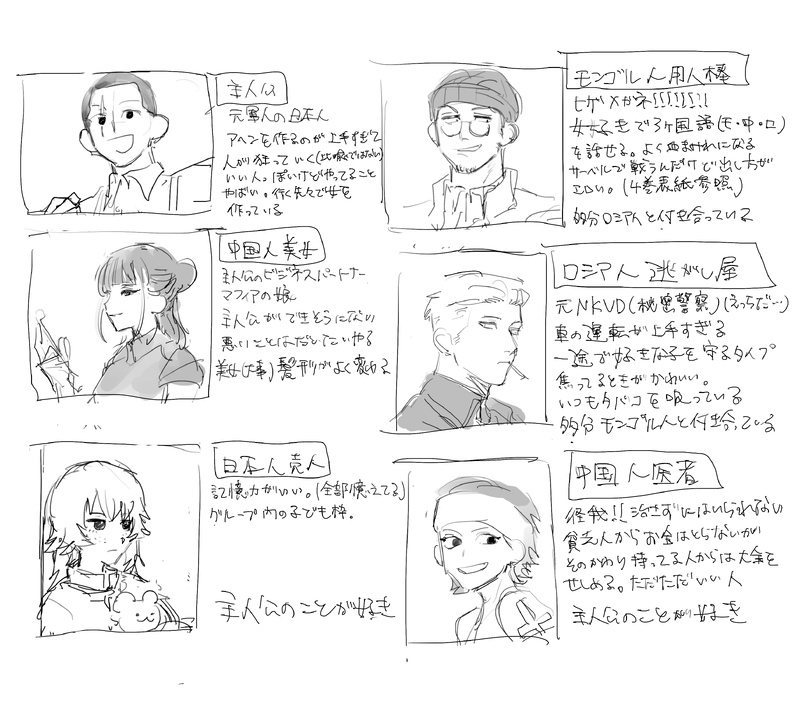 主人公
元軍人の日本人
アヘンを作るのが上手すぎて
人が狂っていく(比喩ではない)
いい人。ぽいけどやってること
やばい。行く先々で女を
作っている
モンゴル人用人棒
ヒゲメガネ!!!!!!!
女好きで3ヶ国語(モ・中・ロ)
を話せる。よく血まみれになる
サーベルで戦うんだけど出し方が
エロい。(4巻表紙参照)
多分ロシア人と付き合っている
中国人美女
主人公のビジネスパートナー
マフィアの娘
主人公ができそうにない
悪いことはだいたいこいつがやる
美女(大事)髪型がよく変わる
ロシア人逃がし屋
元NKVD(秘密警察)(えっちだ…)
車の運転が上手すぎる
一途で好きな子を守るタイプ
焦ってるときがかわいい。
いつもタバコを吸っている
多分モンゴル人と付き合っている
日本人売人
記憶力がいい。(全部憶えてる)
グループ内の子ども枠。
主人公のことが好き
中国人医者
怪我!!治さずにはいられない
貧乏人からお金はとらないが
そのかわり持ってる人からは大金を
せしめる。ただただいい人
主人公のことが好き